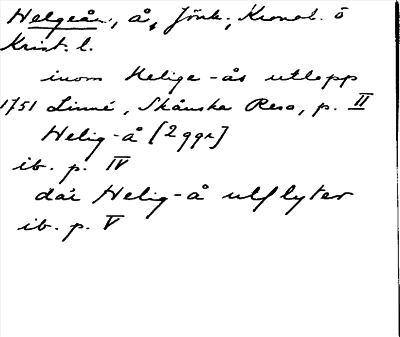 Helgeån, å, Jönk., Kronob. o
Krist. l.
inom Helige-ås utlopp
1751 Linné, Skånska Resa, p. II
Helig-å [2 ggr]
ib. p. IV
där Helig-å utflyter
ib. p. V